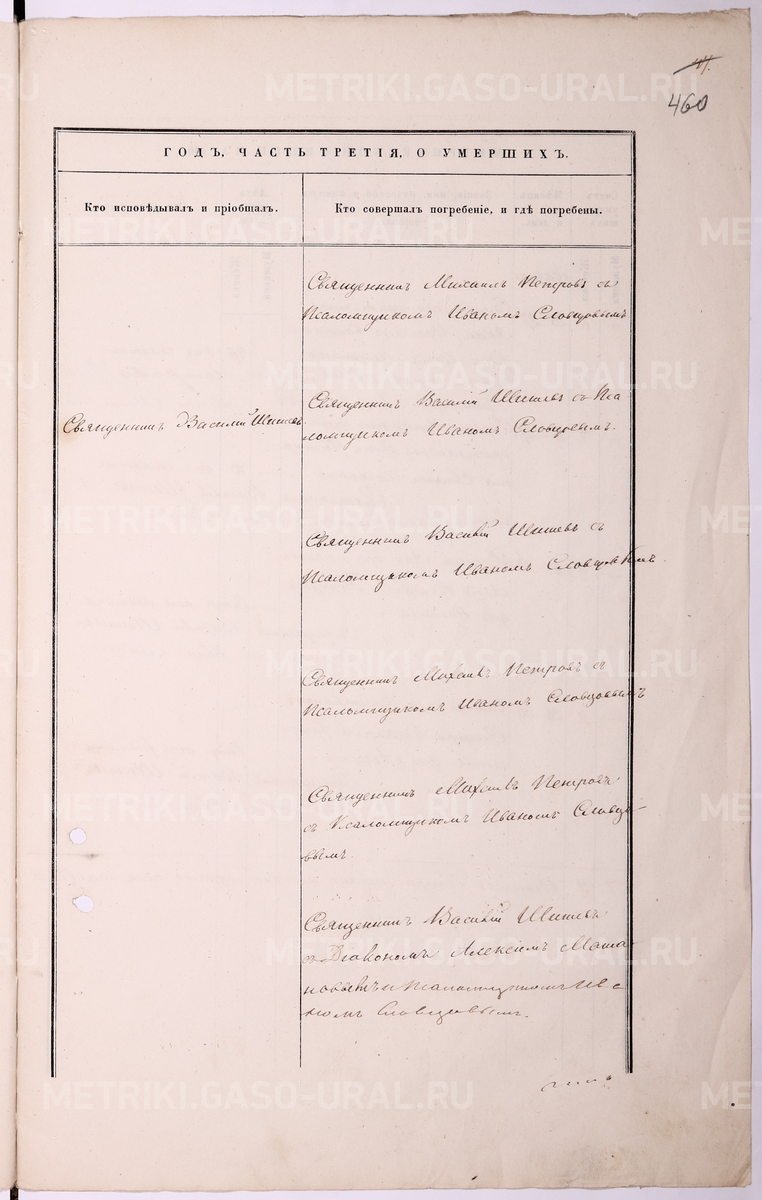 47.
460
ГОДЪ, ЧАСТЬ ТРЕТІЯ, О УМЕРШИХЪ.
Кто исповѣдывалъ и пріобщалъ.
Кто совершалъ погребеніе, и гдѣ погребены.
Священникъ Михаилъ Петровъ съ
Псаломщикомъ Иваномъ Словцовымъ
Священникъ Василій
Священникъ Василій съ Пса
ломщикомъ Иваномъ Словцовымъ.
Священникъ Василій съ
Псаломщикомъ Иваномъ Словцовымъ
Священникъ Михаилъ Петровъ съ
Псаломщикомъ Иваномъ Словцовымъ
Священникъ Михаилъ Петровъ
съ Псаломщикомъ Иваномъ Словцо-
вымъ.
Священникъ Василій
съ Діакономъ Алексіемъ
и Псаломщикомъ Ива
номъ Словцовымъ.
METRIKI.GASO-URAL.RU